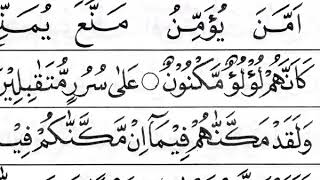 اٰمَنَ يُؤَمِّنُ مَنَّعَ يُمَنِّعُ
كَاَنَّهُمْ لُؤْلُؤٌ مَّكْنُوْنٌ ○ عَلٰى سُرُرٍ مُّتَقٰبِلِيْنَ
وَلَقَدْ مَكَّنّٰهُمْ فِيْمَاۤ اِنْ مَّكَّنّٰكُمْ فِيْهِ